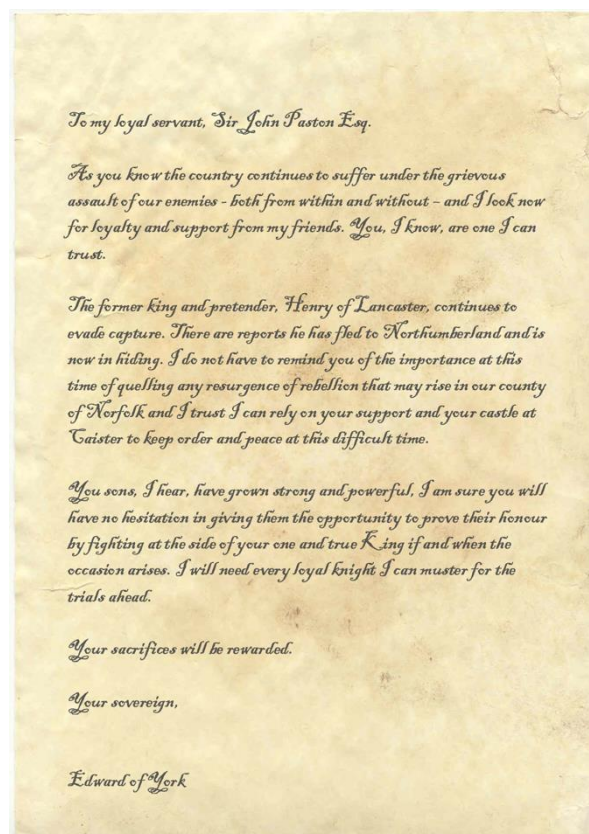 To my loyal servant, Sir John Paston Esq.
As you know the country continues to suffer under the grievous
assault of our enemies - both from within and without – and I look now
for loyalty and support from my friends. You, I know, are one I can
trust.
The former king and pretender, Henry of Lancaster, continues to
evade capture. There are reports he has fled to Northumberland and is
now in hiding. I do not have to remind you of the importance at this
time of quelling any resurgence of rebellion that may rise in our county
of Norfolk and I trust I can rely on your support and your castle at
Caister to keep order and peace at this difficult time.
You sons, I hear, have grown strong and powerful, I am sure you will
have no hesitation in giving them the opportunity to prove their honour
by fighting at the side of your one and true King if and when the
occasion arises. I will need every loyal knight I can muster for the
trials ahead.
Your sacrifices will be rewarded.
Your sovereign,
Edward of York